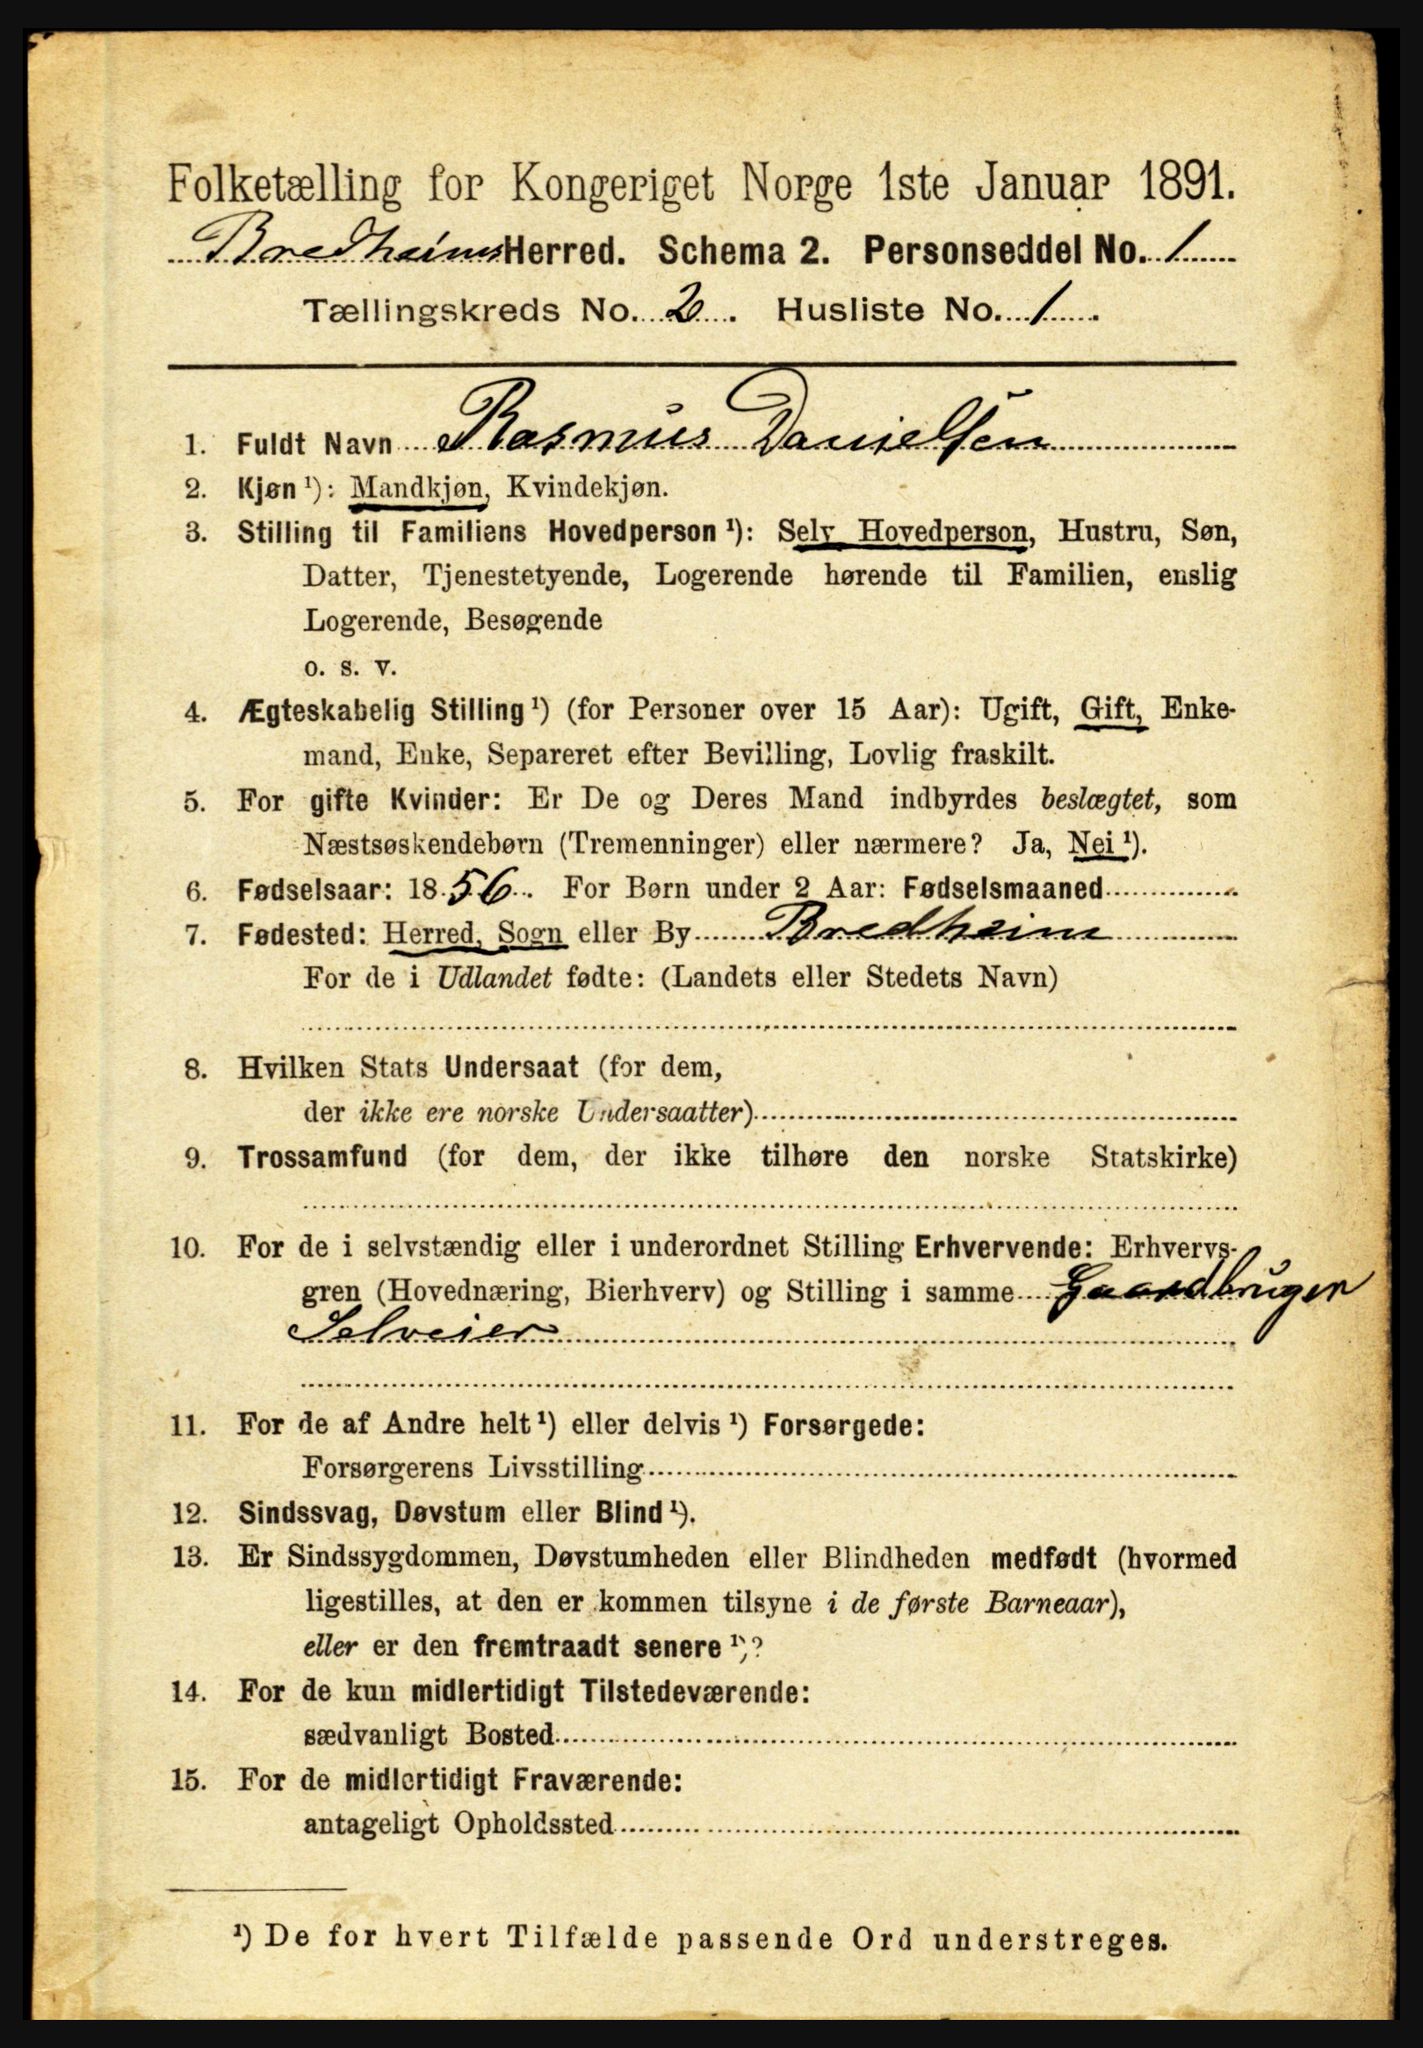 Folketælling for Kongeriget Norge 1ste Januar 1891.
Bredheims Herred. Schema 2. Personseddel No. 1
Tællingskreds No. 2. Husliste No. 1.
1. Fuldt Navn Rasmus Danielsen
2. Kjøn ¹): Mandkjøn, Kvindekjøn.
3. Stilling til Familiens Hovedperson ¹): Selv Hovedperson, Hustru, Søn,
Datter, Tjenestetyende, Logerende hørende til Familien, enslig
Logerende, Besøgende
o. s. v.
4. Ægteskabelig Stilling ¹) (for Personer over 15 Aar): Ugift, Gift, Enke-
mand, Enke, Separeret efter Bevilling, Lovlig fraskilt.
5. For gifte Kvinder: Er De og Deres Mand indbyrdes beslægtet, som
Næstsøskendebørn (Tremenninger) eller nærmere? Ja, Nei ¹).
6. Fødselsaar: 1856. For Børn under 2 Aar: Fødselsmaaned
7. Fødested: Herred, Sogn eller By Bredheim
For de i Udlandet fødte: (Landets eller Stedets Navn)
8. Hvilken Stats Undersaat (for dem,
der ikke ere norske Undersaatter)
9. Trossamfund (for dem, der ikke tilhøre den norske Statskirke)
10. For de i selvstændig eller i underordnet Stilling Erhvervende: Erhvervs-
gren (Hovednæring, Bierhverv) og Stilling i samme Gaardbruger
Selveier
11. For de af Andre helt ¹) eller delvis ¹) Forsørgede:
Forsørgerens Livsstilling
12. Sindssvag, Døvstum eller Blind ¹).
13. Er Sindssygdommen, Døvstumheden eller Blindheden medfødt (hvormed
ligestilles, at den er kommen tilsyne i de første Barneaar),
eller er den fremtraadt senere ¹)?
14. For de kun midlertidigt Tilstedeværende:
sædvanligt Bosted
15. For de midlertidigt Fraværende:
antageligt Opholdssted
¹) De for hvert Tilfælde passende Ord understreges.